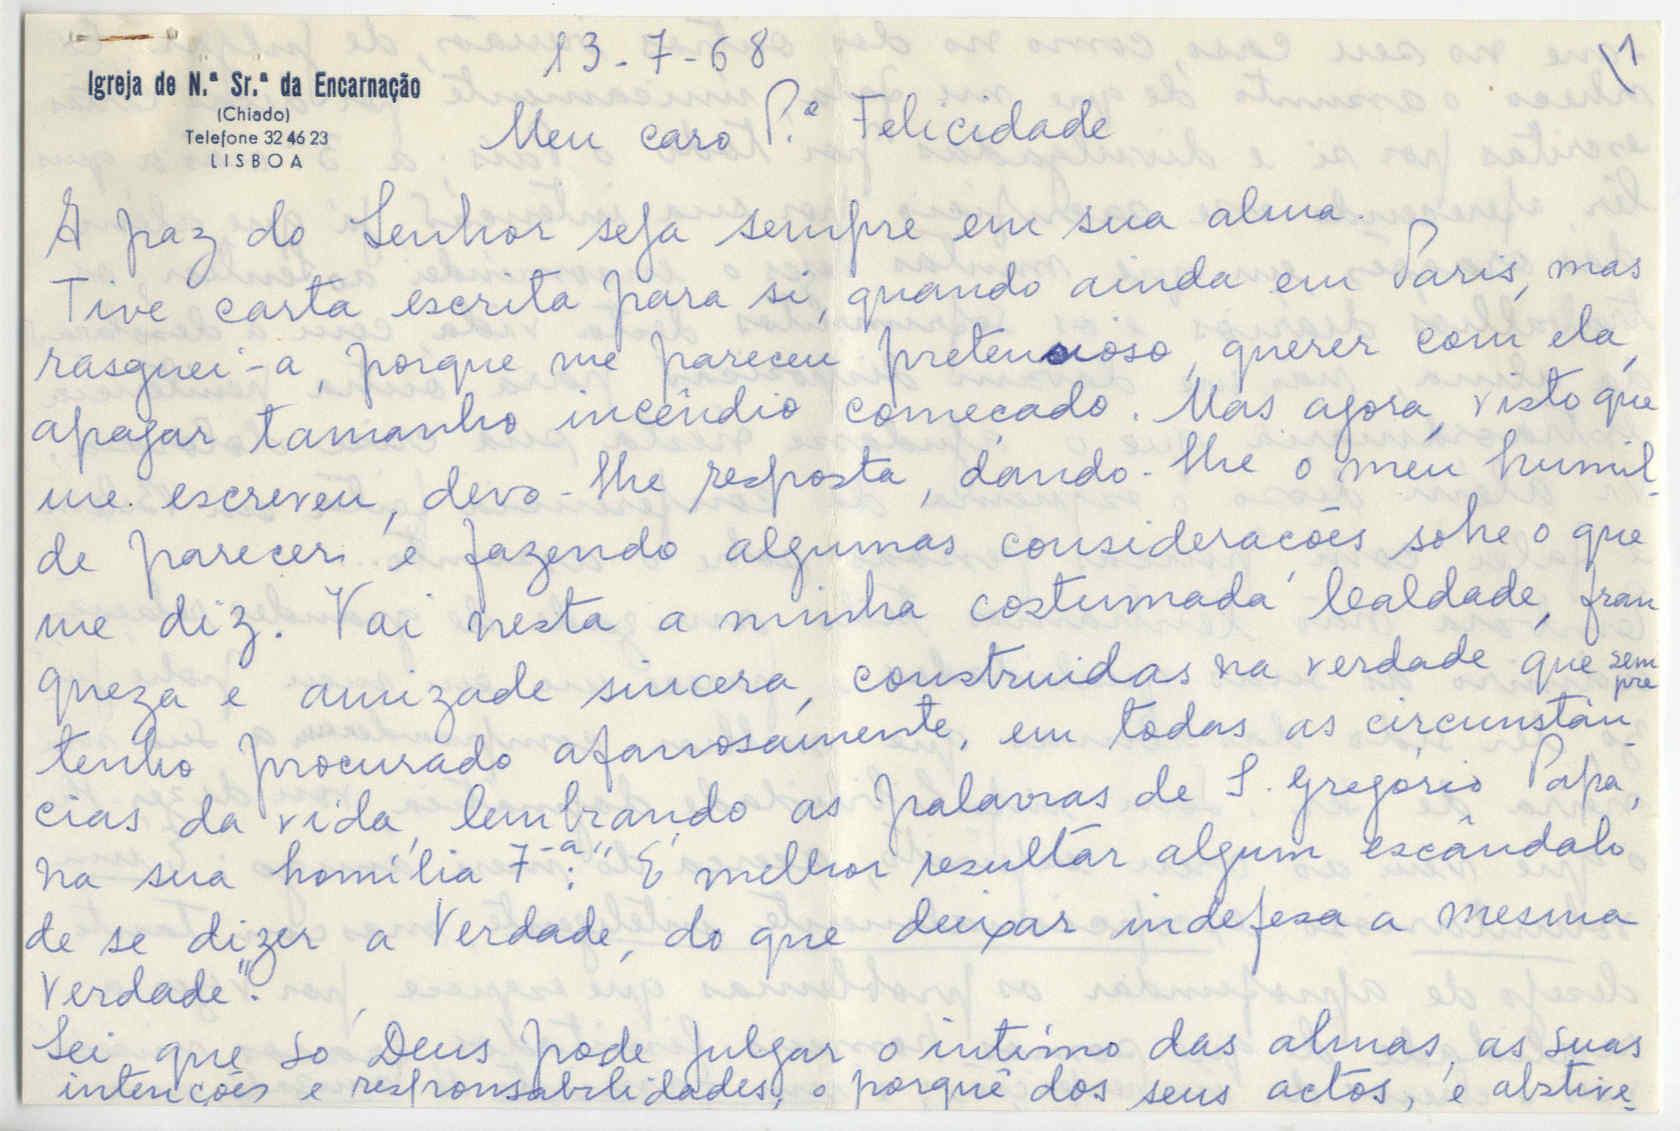 13-7-68
\1
Igreja de N.ª Sr.ª da Encarnação
(Chiado)
Telefone 32 46 23
LISBOA
Meu caro P.ᵉ Felicidade
A paz do Senhor seja sempre em sua alma.
Tive carta escrita para si, quando ainda em Paris, mas
rasguei-a, porque me pareceu pretencioso, querer com ela,
apagar tamanho incêndio começado. Mas agora, visto que
me escreveu, devo-lhe resposta, dando-lhe o meu humil-
de parecer e fazendo algumas considerações sobre o que
me diz. Vai nesta a minha costumada lealdade, fran
queza e amizade sincera, construidas na verdade que sempre
tenho procurado afanosamente, em todas as circunstân-
cias da vida, lembrando as palavras de S. Gregório Papa,
na sua homília 7-ª: "É melhor resultar algum escândalo
de se dizer a Verdade, do que deixar indefesa a mesma
Verdade".
Sei que só Deus pode julgar o intimo das almas, as suas
intenções e responsabilidades, o porquê dos seus actos, e abstive-